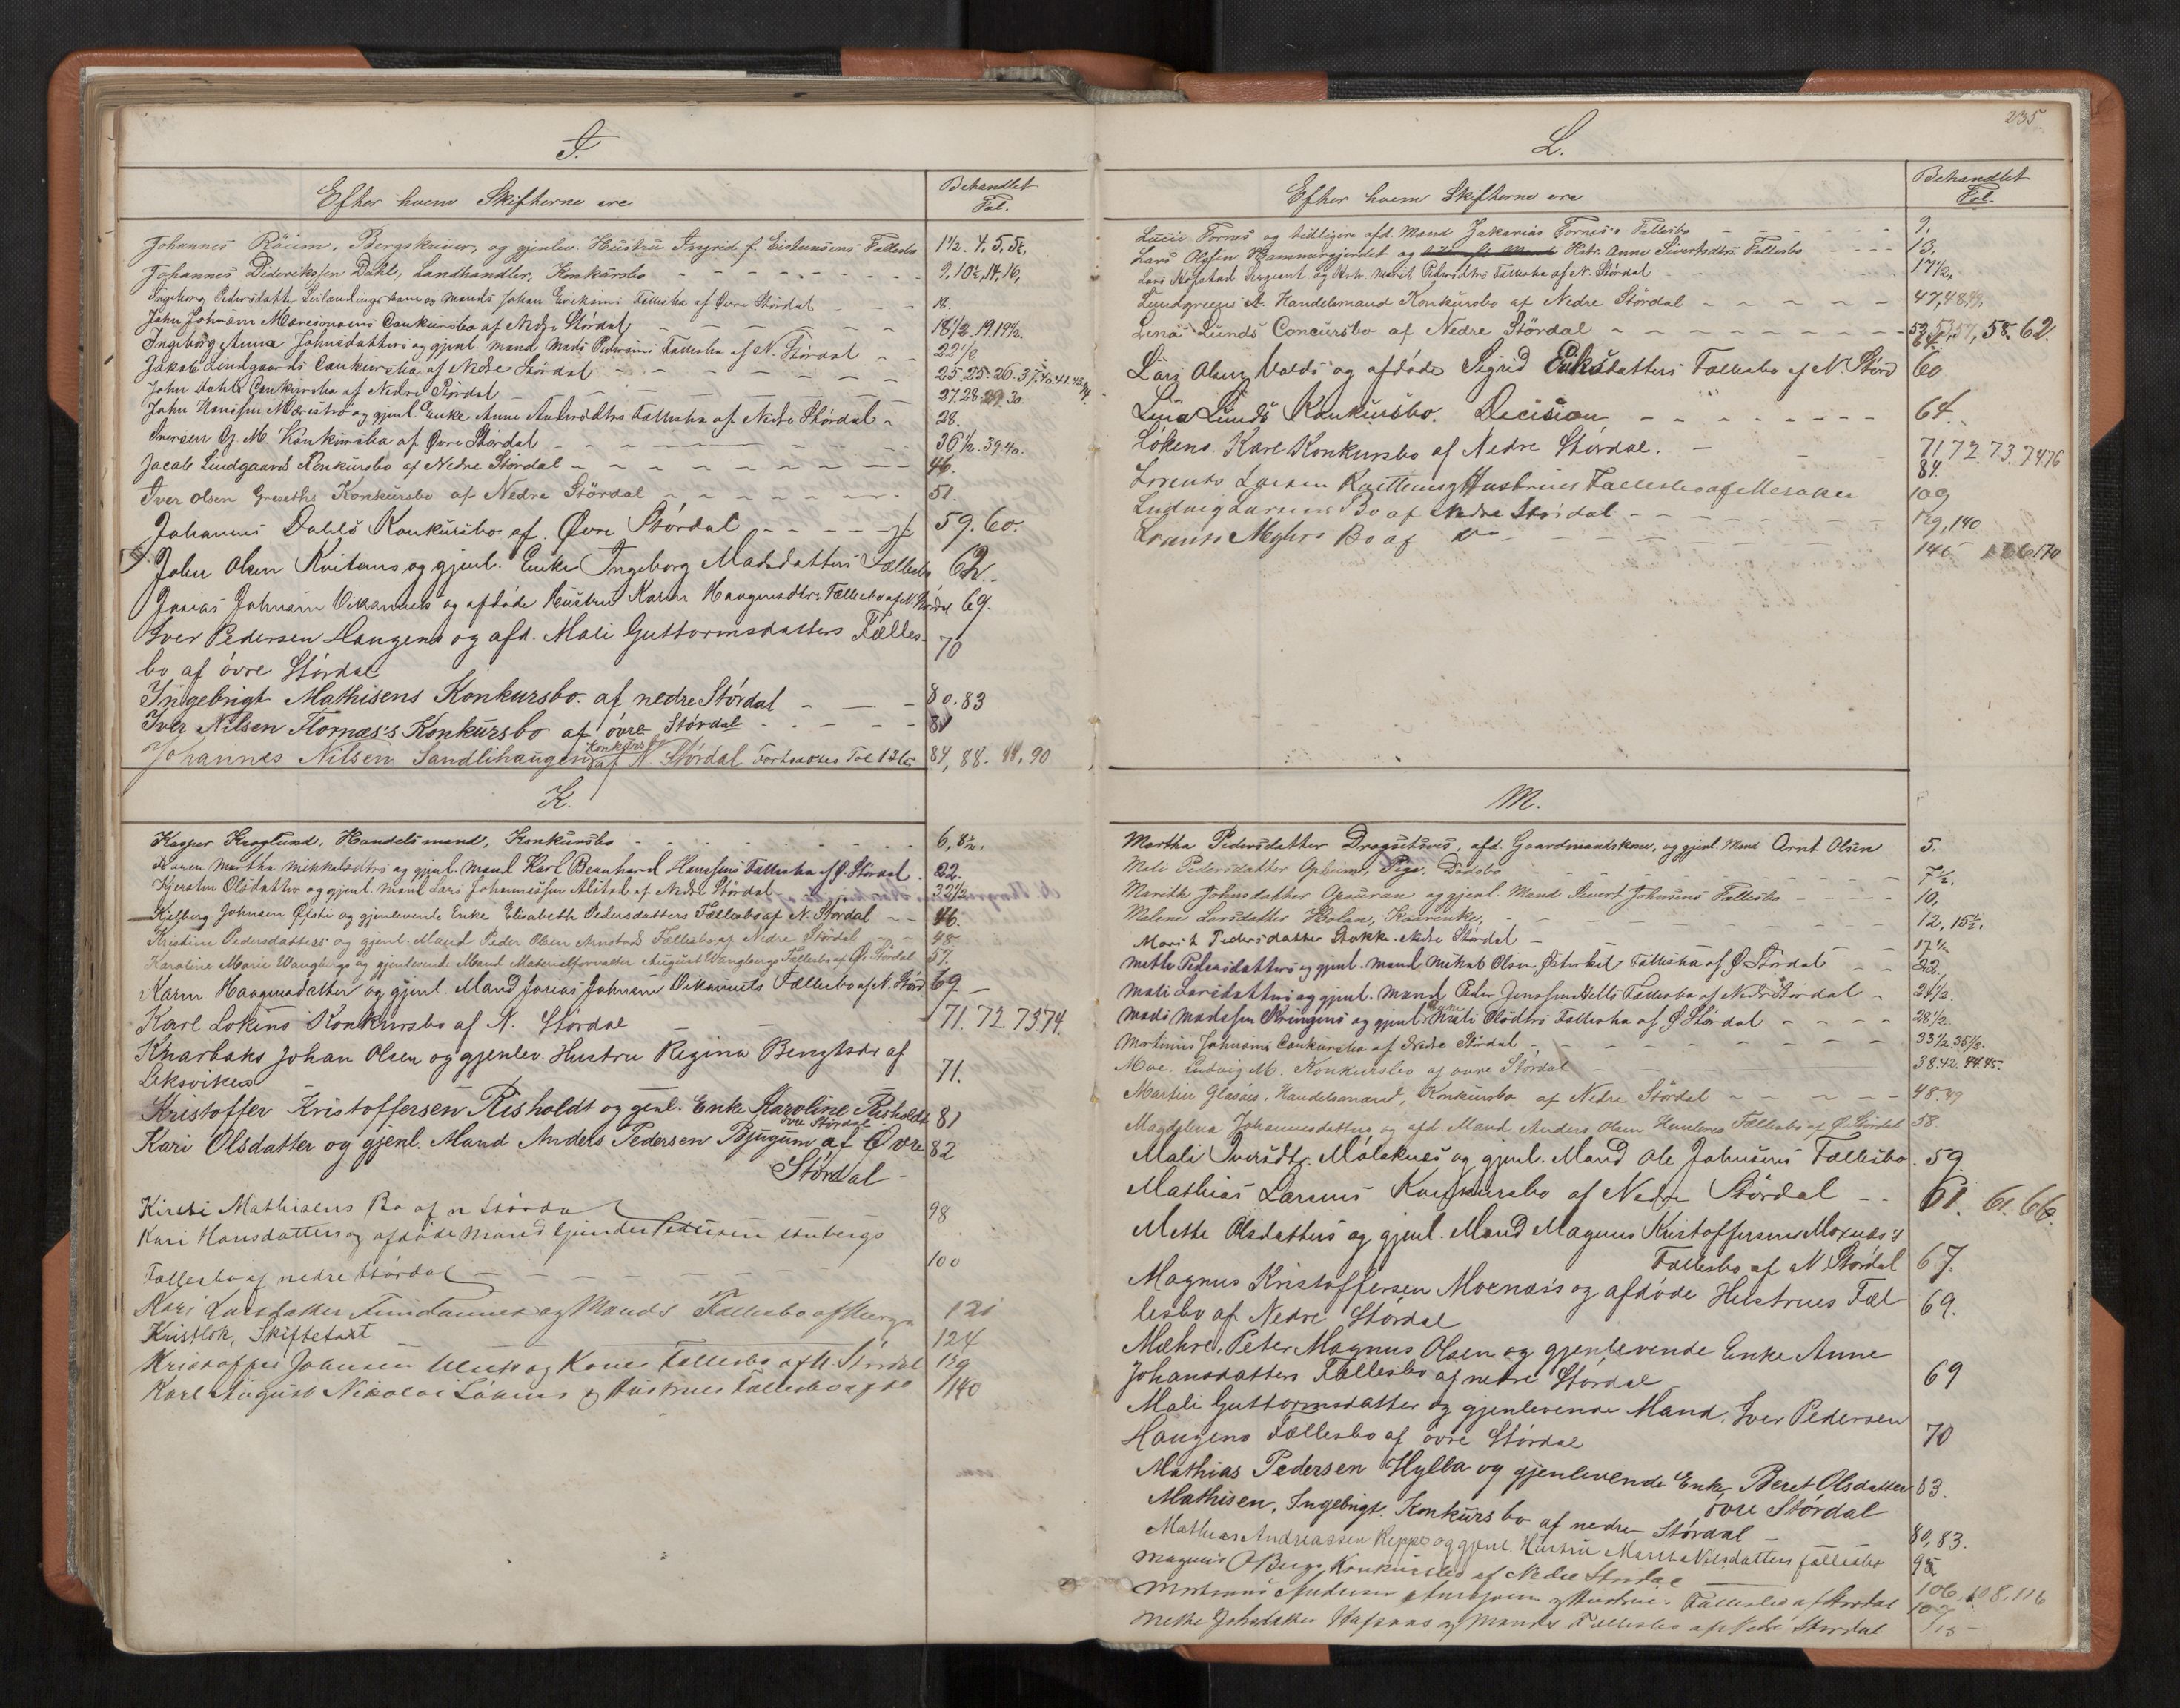 J.
Efther hvem Skifterne ere
Behandlet Fol.
Johannes Räim, Bergskriver, og gjenlev. Hustru Ingrid f. Fællesbo 1½. 4. 5. 5½.
Johannes Dideriksen Dahl, Landhandler, Konkursbo - - - 9, 10½, 14, 16,
Ingeborg Pedersdatter og Mands Johan Eriksens Fællesbo af Øvre Stördal
John Johnsen Concursbo af Nedre Stördal - - - 18½. 19. 19½.
Ingeborg Anna Johnsdatters og gjenl. Mand Mads Pedersens Fællesbo af N. Stördal - - 22½
Jakob Lindgaards Conkursbo af Nedre Stördal - - - 25. 25. 26. 37.
John Dahls Conkursbo af Nedre Stördal - - - 27. 28. 29. 30.
John Hansen og gjenl. Enke Anne Fællesbo af Nedre Stördal - 28.
Iversen O. M. Konkursbo af Øvre Stördal - - - 36½. 39. 40.
Jacob Lindgaards Konkursbo af Nedre Stördal - - - 46.
Iver Olsen Græeths Konkursbo af Nedre Stördal - - - 51.
Johannes Dahls Konkursbo af Øvre Stördal - - - 59. 60.
John Olsen Kvitans og gjenl. Enke Ingeborg Madsdatters Fællesbo 62.
Josias Johnsen og afdöde Hustru Karen Haagensdtrs Fællesbo af N. Stördal 69.
Iver Pedersen Haugens og afd. Mali Guttormsdatters Fælles-
bo af övre Stördal 70
Ingebrigt Mathisens Konkursbo af nedre Stördal - - - 80. 83
Iver Nilsen Flornæs's Konkursbo af övre Stördal - - - 81
Johannes Nilsen Sandlihaugen Konkursbo af N Stördal Fortsættes Fol 136 84, 88. 90
K.
Kasper Kraglund, Handelsmand, Konkursbo - - - 6, 8½,
Karen Martha Mikkelsdtrs og gjenl. Mand Karl Bernhard Hansens Fællesbo af Ø. Stördal. 22.
Kjerstin Olsdatter og gjenl. Mand Lars Johannessen af Nedre Stördal 32½
Kjelberg Johnsen Øfsti og gjenlevende Enke Elisabeth Pedersdatters Fællesbo af N. Stördal - - 46.
Kristine Pedersdatters og gjenl. Mand Peder Olsen Arnstads Fællesbo af Nedre Stördal - - 48
Karoline Marie Wangbergs og gjenlevende Mand Materialforvalter August Wangbergs Fællesbo af Ø. Stördal 57.
Karen Haagensdatter og gjenl. Mand Josias Johnsen Fællesbo af N. Störd. 69 -
Karl Lokens Konkursbo af N. Stördal - - - 71. 72 73 74.
Knarbaks Johan Olsen og gjenlev. Hustru Regina Bengtsdr af
Leksviken 71.
Kristoffer Kristoffersen Risholdt og genl. Enke Karoline Risholdt övre Stördal 81
Kari Olsdatter og gjenl. Mand Anders Pedersen Bjugum af Övre 82
Stördal -
Kirsti Mathisens Bo af n Stördal 98
Kari Hansdatters og afdöde Mand Gunder Pedersen Stubergs
Fællesbo af nedre Stördal - - - 100
Kari Larsdatter og Mands Fællesbo af Meraker 121
Skiftetart 124
Kristoffer Johnsen og Kones Fællesbo af N. Stördal 129
Karl August Nikolai Lökens og Hustrues Fællesbo af do 140
235
L.
Efther hvem Skifterne ere
Behandlet Fol.
Lucie Fornes og tidligere afd. Mand Zakarias Fornes's Fællesbo - - - 9.
Lars Olsen Hammergjerdet og Hstr. Anne Sivertsdtrs Fællesbo - - - 13,
Lars Sergeant og Hstr. Marit Pedersdtrs Fællesbo af N. Stördal - 17½,
Lundgreen A. Handelsmand Konkursbo af Nedre Stördal - - - 47, 48, 49,
Lina Lunds Concursbo af Nedre Stördal - - - 52, 53, 57, 58. 62. 64.
Lars Olsen Valds og afdöde Sigrid Eriksdatters Fællesbo af N. Störd 60
Lina Lunds Konkursbo. Decision - - - 64.
Lökens Karl Konkursbo af Nedre Stördal. - 71 72. 73. 74 76 84.
Lorents Larsen og Hustrues Fællesbo af Meraker 109
Ludvig Larsens Bo af Nedre Stördal - - - 129, 140
Lorents Meyers Bo af do - - - 146 170
M.
Martha Pedersdatter Dragsetsves, afd. Gaardmandskone, og gjenl. Mand Arnt Olsen 5.
Mali Pedersdatter Opheim, Pige, Dödsbo - - - 7½.
Marith Johnsdatter og gjenl. Mand Sivert Johnsens Fællesbo - - - 10,
Malene Larsdatter Holan, Kaarenke, - - - 12, 15½.
Marit Pedersdatter Stokke Nedre Stördal - - - 17½
Mette Pedersdatters og gjenl. Mand Mikal Olsen Fællesbo af Ø Stördal - - 22.
Mali Larsdatters og gjenl. Mand Peder Jenssen Fællesbo af Nedre Stördal - 24½.
Mads Madssen og gjenl. Kone Mali Olsdtrs Fællesbo af Ø Stördal - - - 28½
Martinus Johnsens Conkursbo af Nedre Stördal - - - 33½. 35½.
Moe. Ludvig M. Konkursbo af övre Stördal - - - 38. 42. 44. 45.
Martin Glasöes, Handelsmand, Konkursbo af Nedre Stördal - - - 48. 49
Magdalena Johannesdatters og afd. Mand Anders Olsen Fællesbo af Ø. Stördal 58.
Mali Iversdtr. Målåknes og gjenl. Mand Ole Johnsens Fællesbo. 59.
Mathias Larsens Konkursbo af Nedre Stördal - - 61. 61. 66.
Mette Olsdatters og gjenl. Mand Magnus Kristoffersens Moxnæs's
Fællesbo af N. Stördal 67.
Magnus Kristoffersen Moxnæs's og afdöde Hustrues Fæl-
lesbo af Nedre Stördal 69.
Mæhre, Peter Magnus Olsen og gjenlevende Enke Anne
Johansdatters Fællesbo af nedre Stördal 69
Mali Guttormsdatter og gjenlevende Mand, Iver Pedersen
Haugens Fællesbo af övre Stördal 70
Mathias Pedersen Hylla og gjenlevende Enke Beret Olsdatter 83.
övre Stördal
Mathisen, Ingebrigt. Konkursbo af nedre Stördal - 80, 83.
Mathias Andreassen Reppe og gjenl. Hustru Marta Nilsdatters Fællesbo 95
Magnus O Bergs Konkursbo af Nedre Stördal 106, 108, 116
Martinus Andersen og Hustrues Fællesbo af Stördal 107
Mette Johnsdatter og Mands Fællesbo af Nedre Stördal